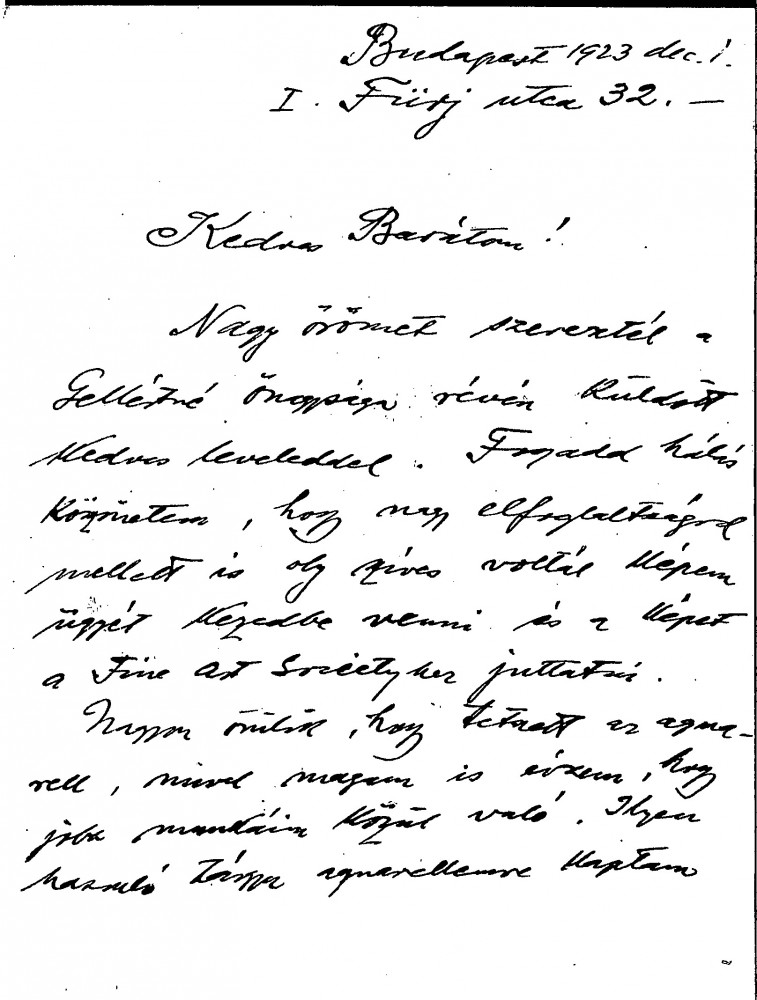 Budapest 1923 dec. 1.
I. Fürj utca 32. —
Kedves Barátom!
Nagy örömet szereztél a
Gellértné őnagysága révén küldött
kedves leveleddel. Fogadd hálás
köszönetem, hogy nagy elfoglaltságod
mellett is oly szives voltál képem
ügyét kezedbe venni és a képet
a Fine Art Societyhez juttatni.
Nagyon örülök, hogy tetszett az aqua-
rell, mivel magam is érzem, hogy
jobb munkáim közül való. Ilyen
hasonló tárgyu aquarellemre kaptam